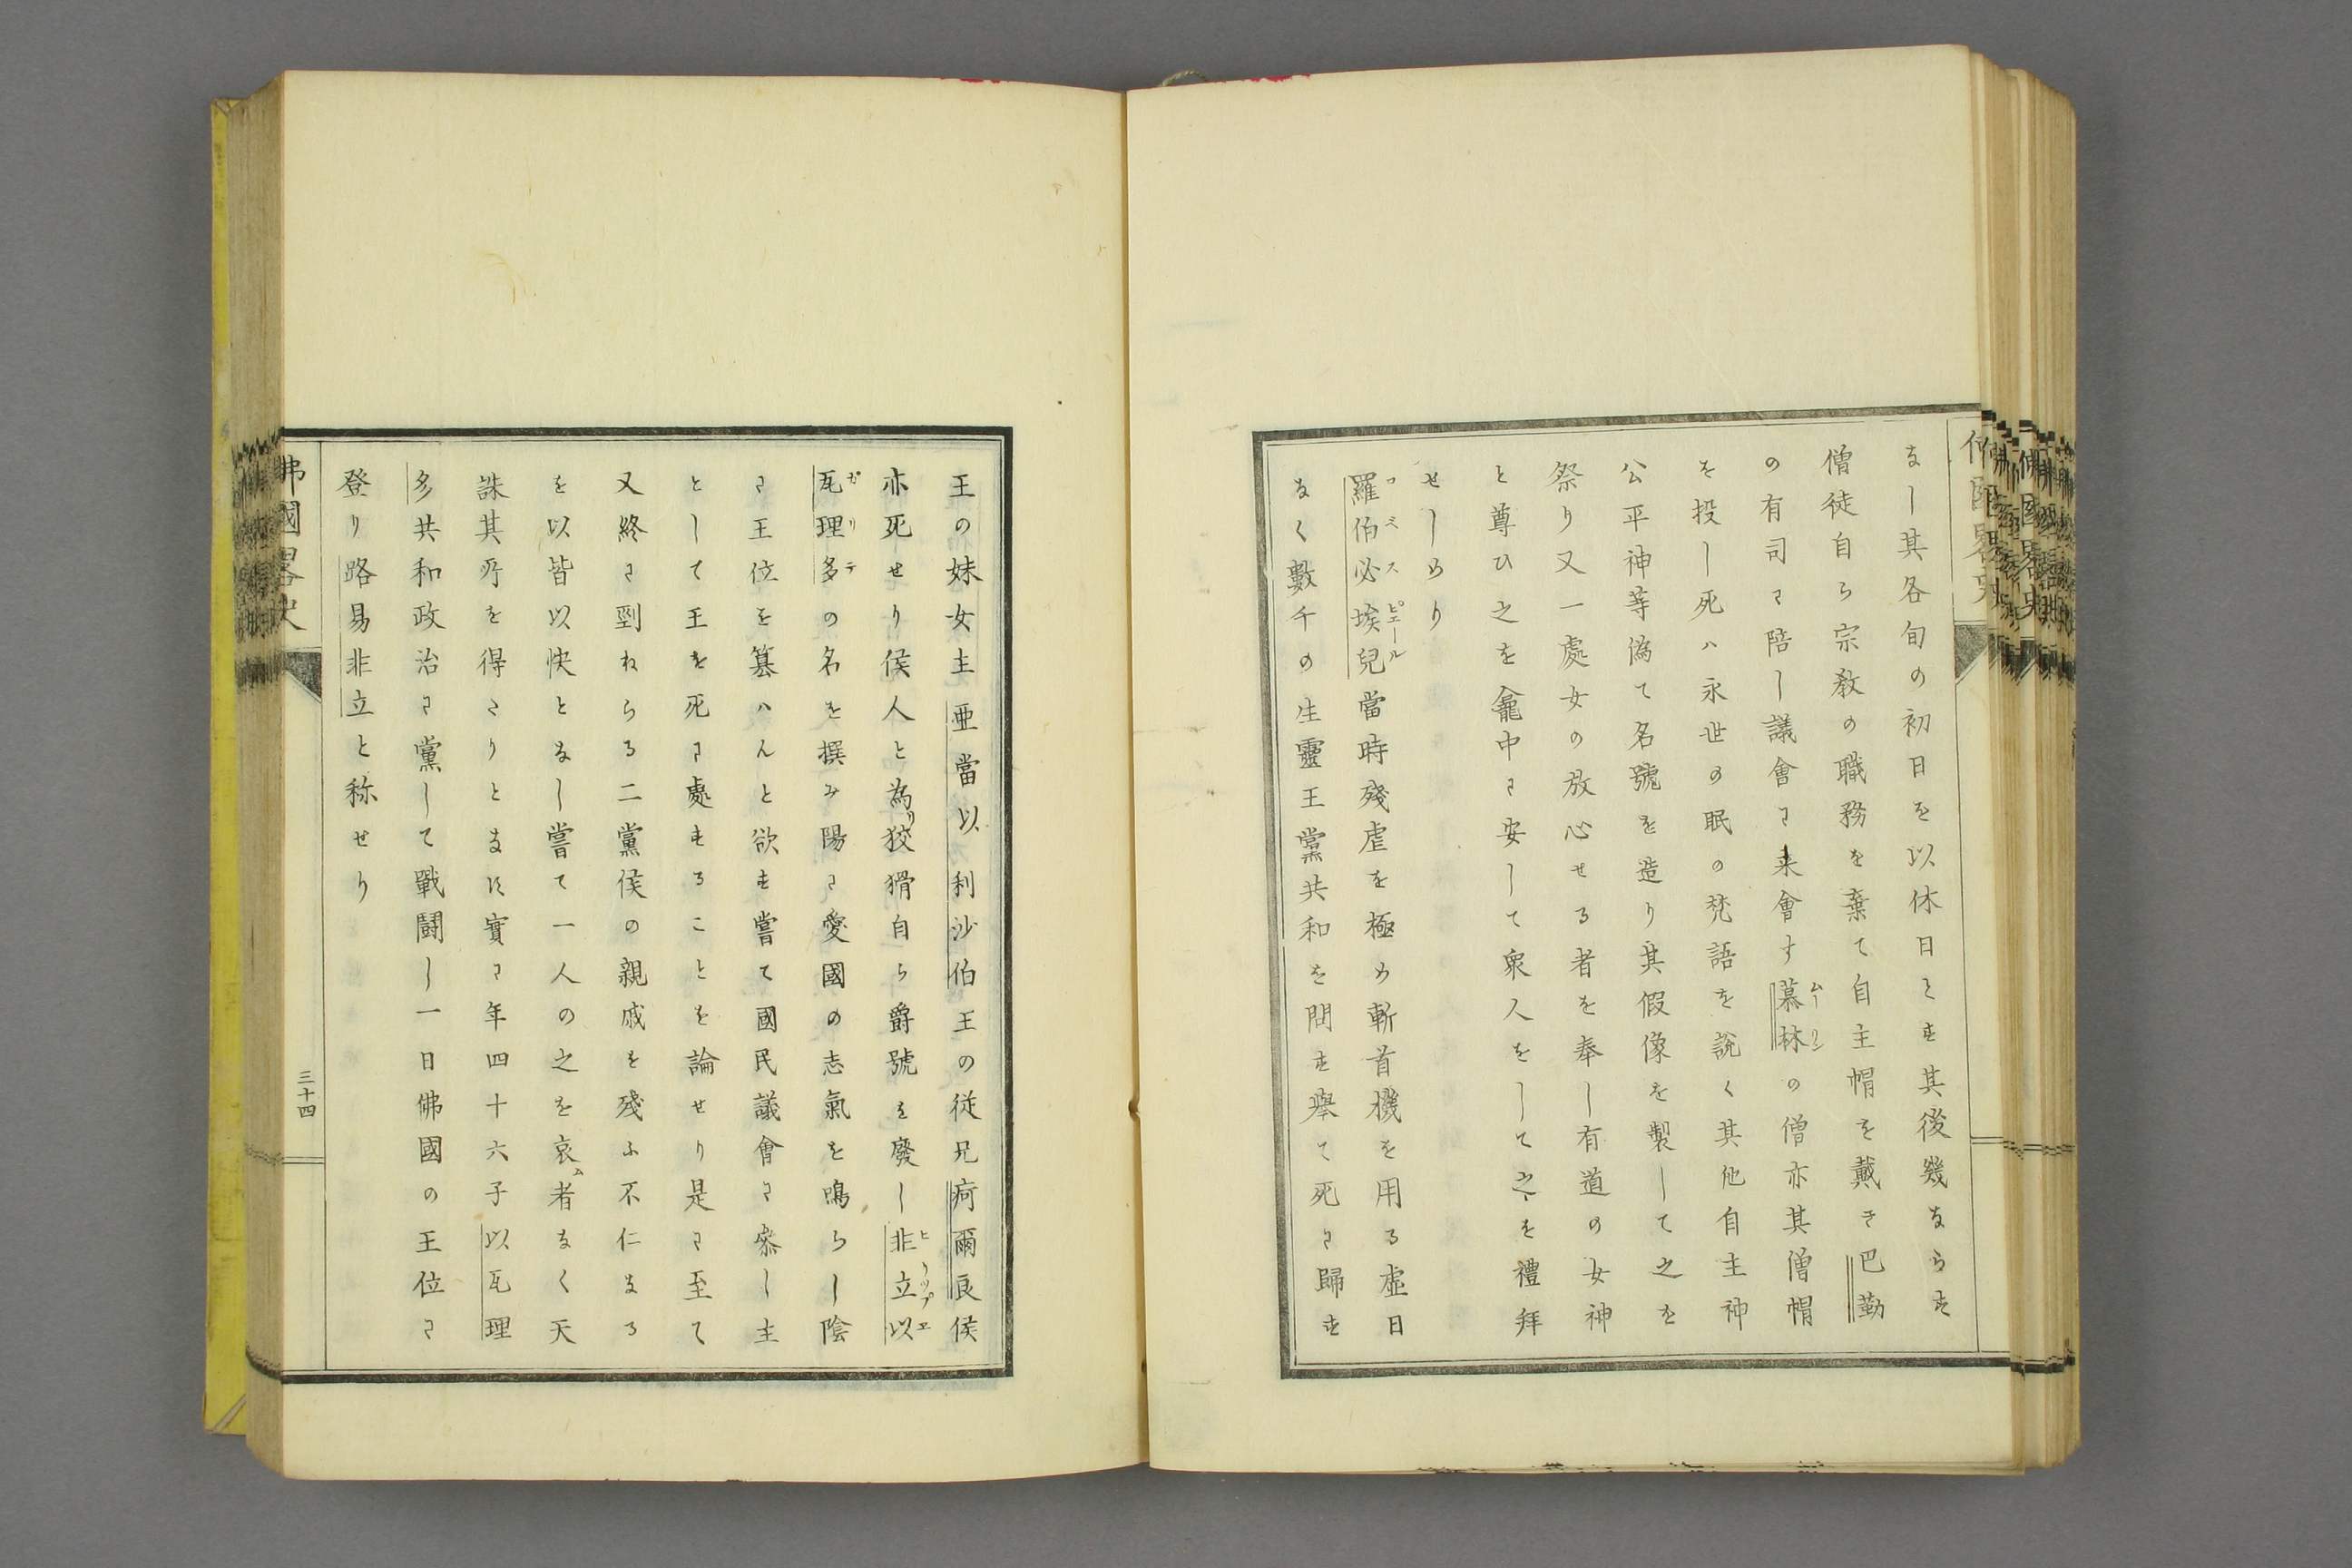 なし其各旬の初日を以休日とす其後幾ならす
僧徒自ら宗教の職務を棄て自主帽を戴き巴勤
の有司に陪し議會に来會す慕林の僧亦其僧帽
ムーリン
を投し死ハ永世の眠の梵語を説く其他自主神
公平神等偽て名號を造り其假像を製して之を
祭り又一處女の放心せる者を奉し有道の女神
と尊ひ之を龕中に安して衆人をして之を禮拜
せしめり
羅伯必埃兒當時殘虐を極め斬首機を用る虚日
ロベスピエール
なく數千の生靈王黨共和を問す擧て死に歸す
王の妹女主亜當以利沙伯王の従兄疴爾良侯
亦死せり侯人と為り狡猾自ら爵號を廢し非立以
ヒリップエ
瓦理多の名を撰み陽に愛國の志氣を鳴らし陰
ガリテ
に王位を簒ハんと欲す嘗て國民議會に叅し主
として王を死に處することを論せり是に至て
又終に剄ねらる二黨侯の親戚を殘ふ不仁なる
を以皆以快となし嘗て一人の之を哀ム者なく天
誅其所を得さりとなす實に年四十六子以瓦理
多共和政治に黨して戰鬪し一日佛國の王位に
登り路易非立と称せり
佛國畧史
三十四